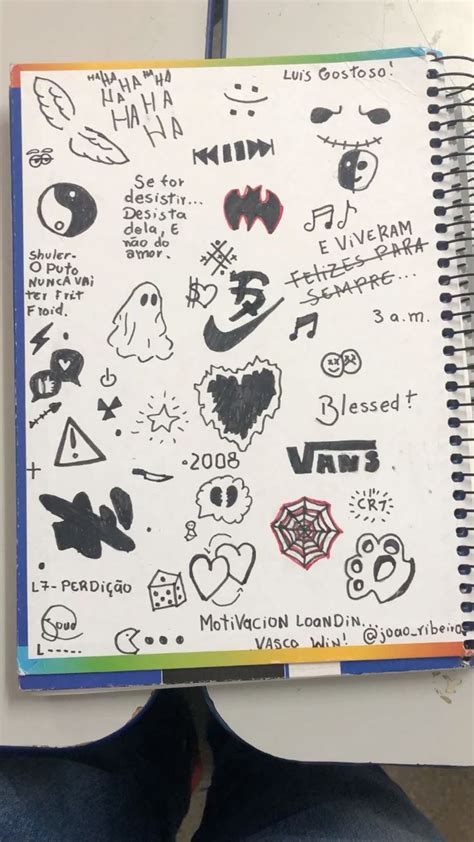 HA HA HA HA
HA HA
HA HA HA
HA
Luis Gostoso!
Se for
desistir...
Desista
dela, E
não do
amor.
E VIVERAM
FELIZES PARA
SEMPRE...
Shuler-
O Puto
NUNCA VAI
ter Frit
Froid.
3 a.m.
Blessed†
.2008
VANS
CRT
L7-PERDIÇÃO
L-----
MOTIVACION LOANDIN...
VASCO WIN!
@joao_ribeiro